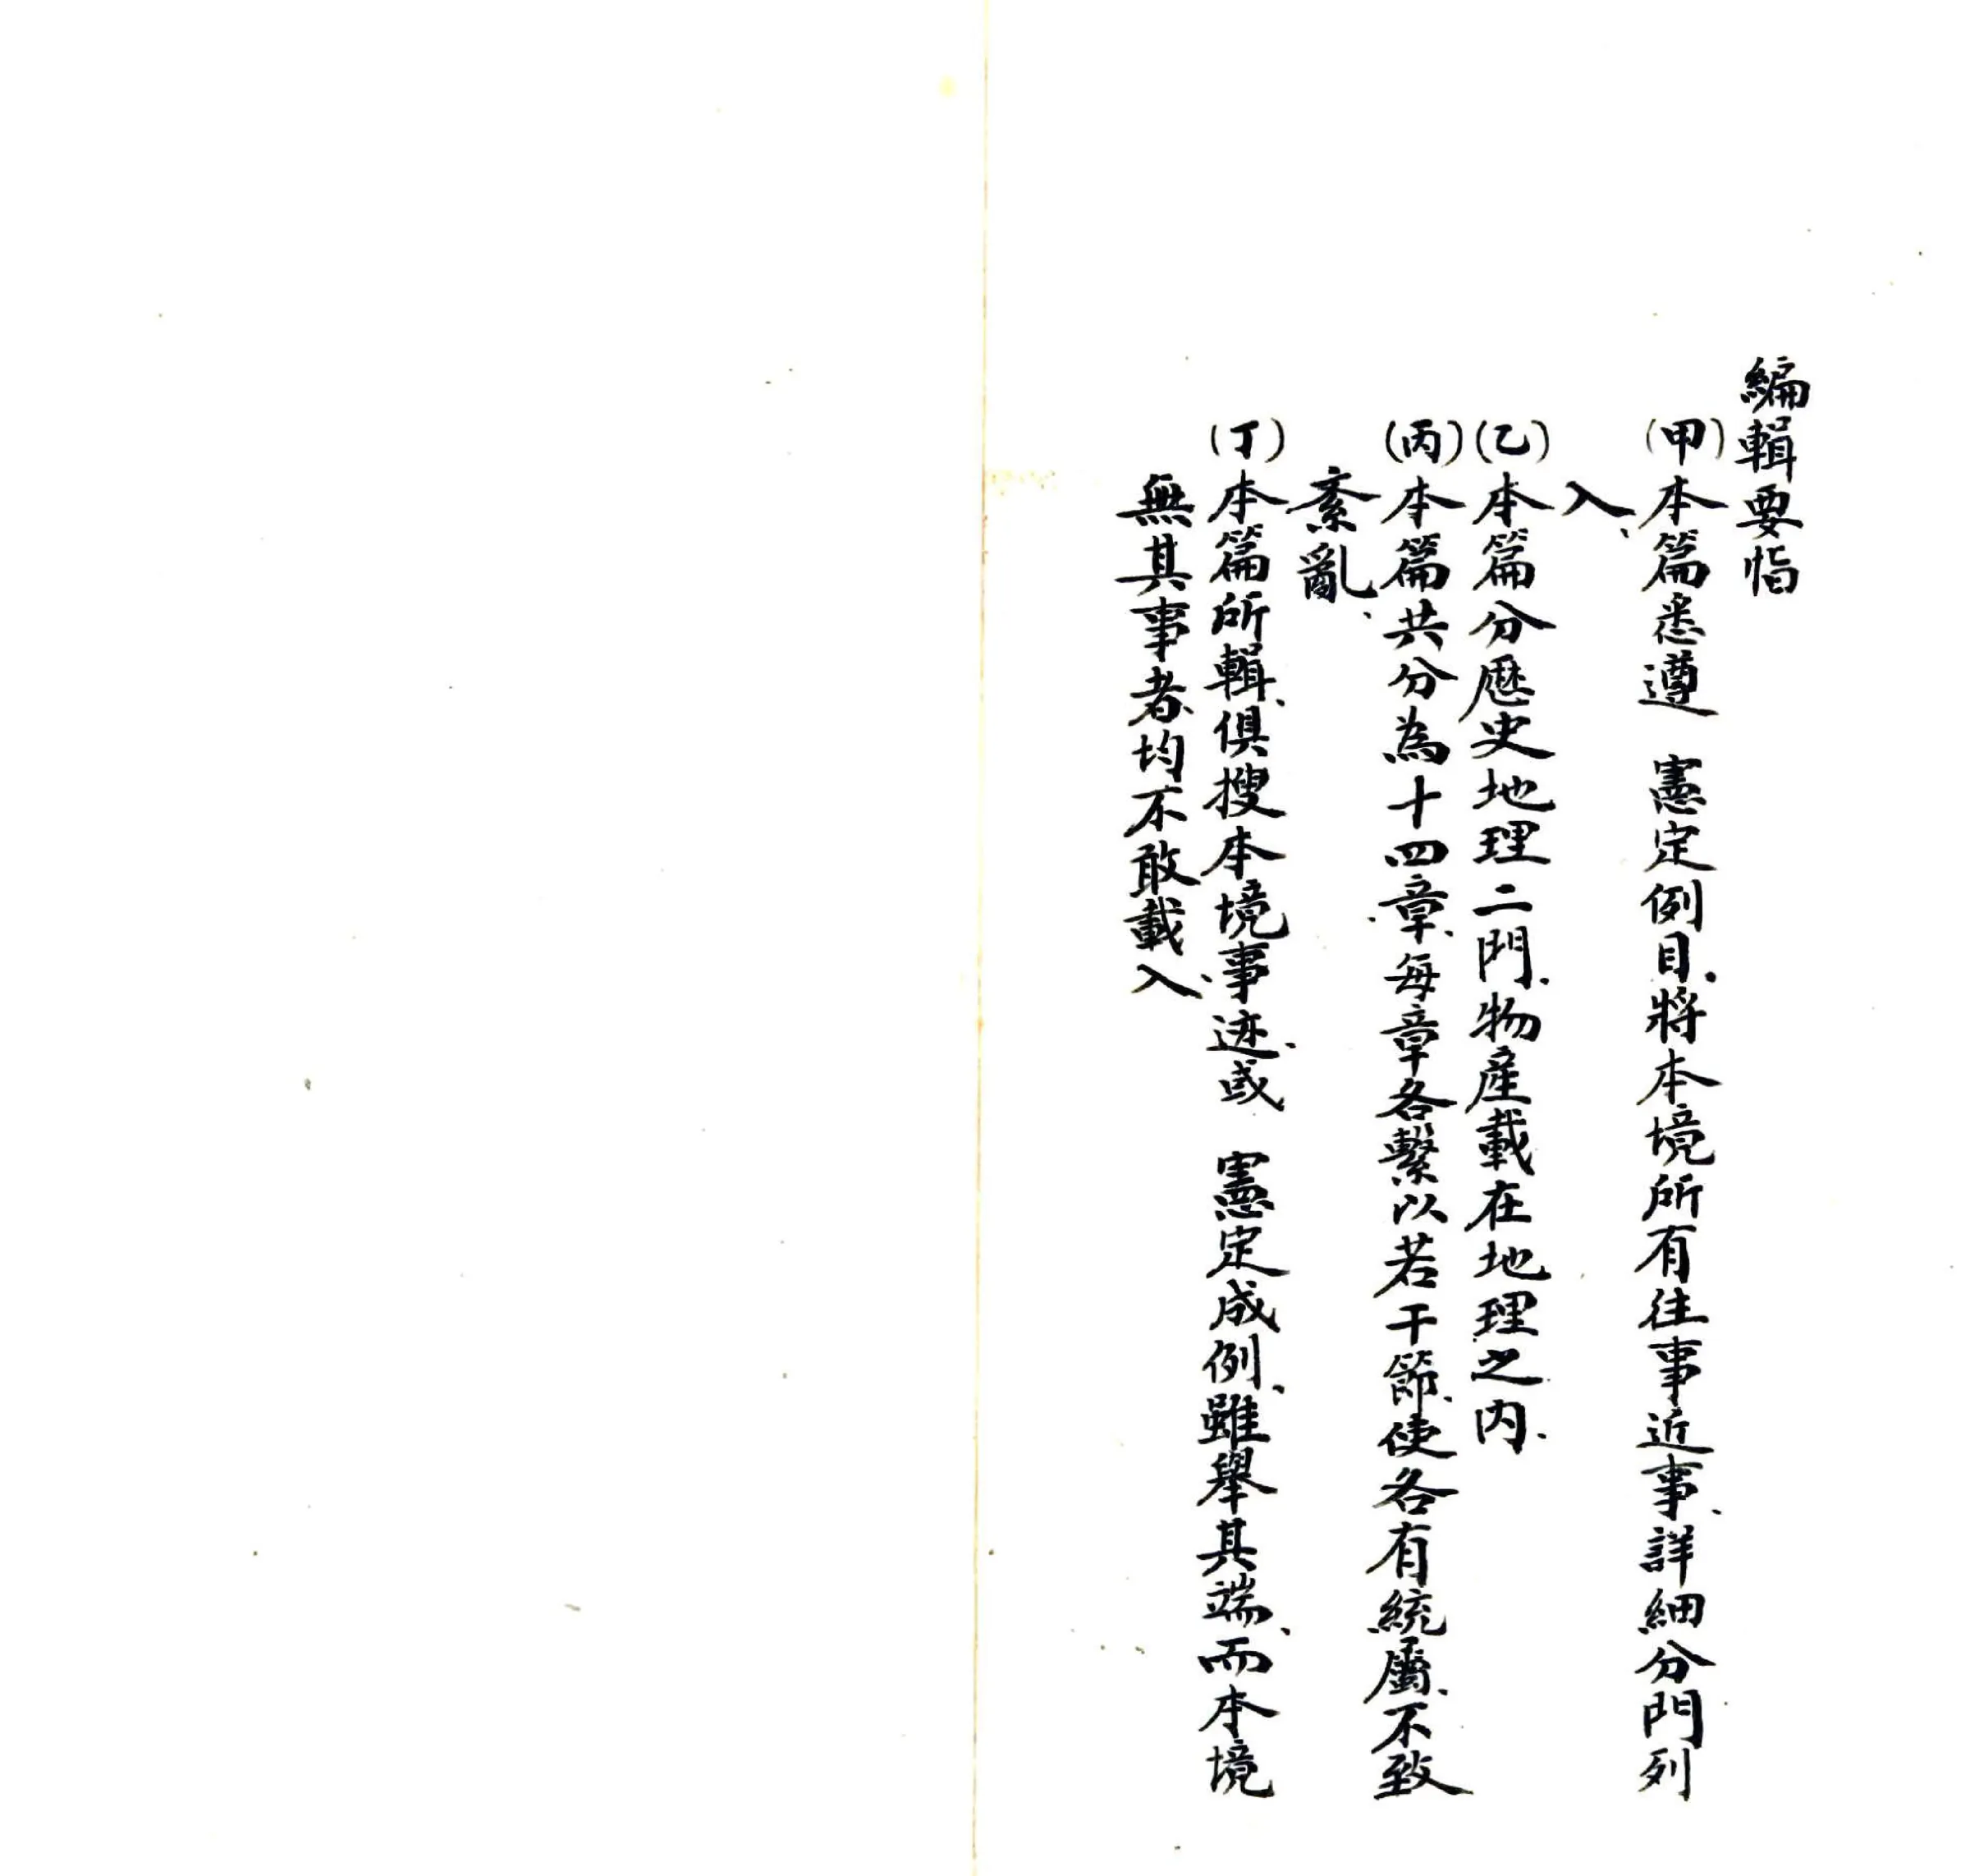 編輯要恉
(甲)本篇悉遵　憲定例目、將本境所有往事近事、詳細分門列
入、
(乙)本篇分歷史地理二門、物產載在地理之內、
(丙)本篇共分為十四章、每章各繫以若干節、使各有統屬、不致
紊亂、
(丁)本篇所輯、俱搜本境事迹、或　憲定成例、雖舉其端、而本境
無其事者、均不敢載入